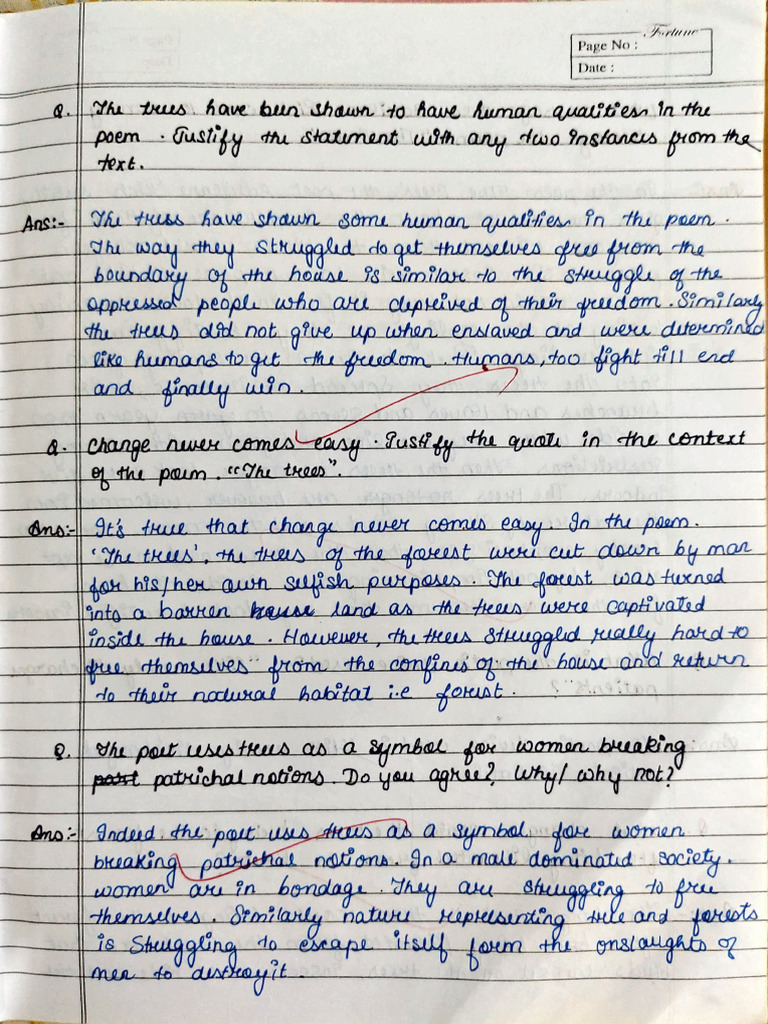 Fortune
Page No :
Date :
Q. The trees have been shown to have human qualities in the
poem. Justify the statement with any two instances from the
text.
Ans:- The tress have shown some human qualities in the poem.
The way they struggled to get themselves free from the
boundary of the house is similar to the struggle of the
oppressed people who are depreived of their freedom. Similarly
the trees did not give up when enslaved and were determined
like humans to get the freedom. Humans, too fight till end
and finally win.
Q. Change never comes easy. Justify the quote in the context
of the poem. "The trees".
Ans:- It's true that change never comes easy. In the poem.
'The trees', the trees of the forest were cut down by man
for his/her own selfish purposes. The forest was turned
into a barren house land as the trees were captivated
inside the house. However, the trees struggled really hard to
free themselves from the confines of the house and return
to their natural habitat i.e forest.
Q. The poet uses trees as a symbol for women breaking
post patrichal notions. Do you agree? Why/ why not?
Ans:- Indeed the poet uses trees as a symbol for women
breaking patrichal notions. In a male dominated society.
women are in bondage. They are struggling to free
themselves. Similarly nature representing tree and forests
is struggling to escape itself form the onslaughts of
men to destroy it.